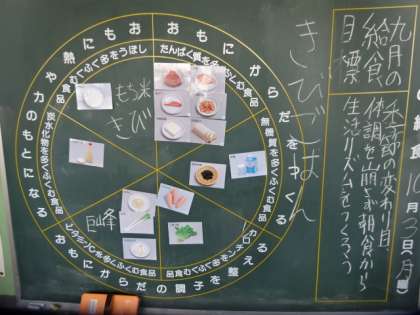 九月の
給食
目標
季節の変わり目、
体調を崩さず朝食から
生活リズムをつくろう
給食
10月3日(月
きびごはん
おもにからだをつくる
たんぱく質を多くふくむ食品
無機質を多くふくむ食品
おもにからだの調子を整える
カロテンを多くふくむ食品
ビタミンCを多くふくむ食品
おもに熱や力のもとになる
炭水化物を多くふくむ食品
しぼうを多くふくむ食品
もち米
きび
巨峰